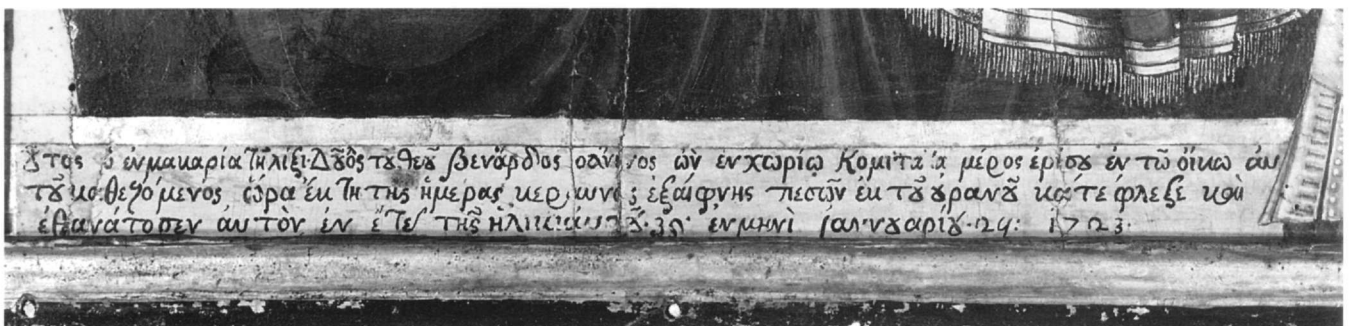 Οὗτος ὁ ἐν μακαρία τῆ λίξει Δοῦλος τοῦ θεοῦ βενάρδος ὢν ἐν χωρίῳ Κομιτάτα μέρος ἐρίσου ἐν τῶ οἴκω αὐ
τοῦ καθεζόμενος ὥρα ἕκτη τῆς ἡμέρας κεραυνὸς ἐξαίφνης πεσῶν ἐκ τοῦ οὐρανοῦ κατέφλεξε καὶ
ἐθανάτοσεν αὐτὸν ἐν ἔτει τῆς ἡλικίας αὐτοῦ· ἐν μηνὶ ἰαννουαρίου· 24: 1723·